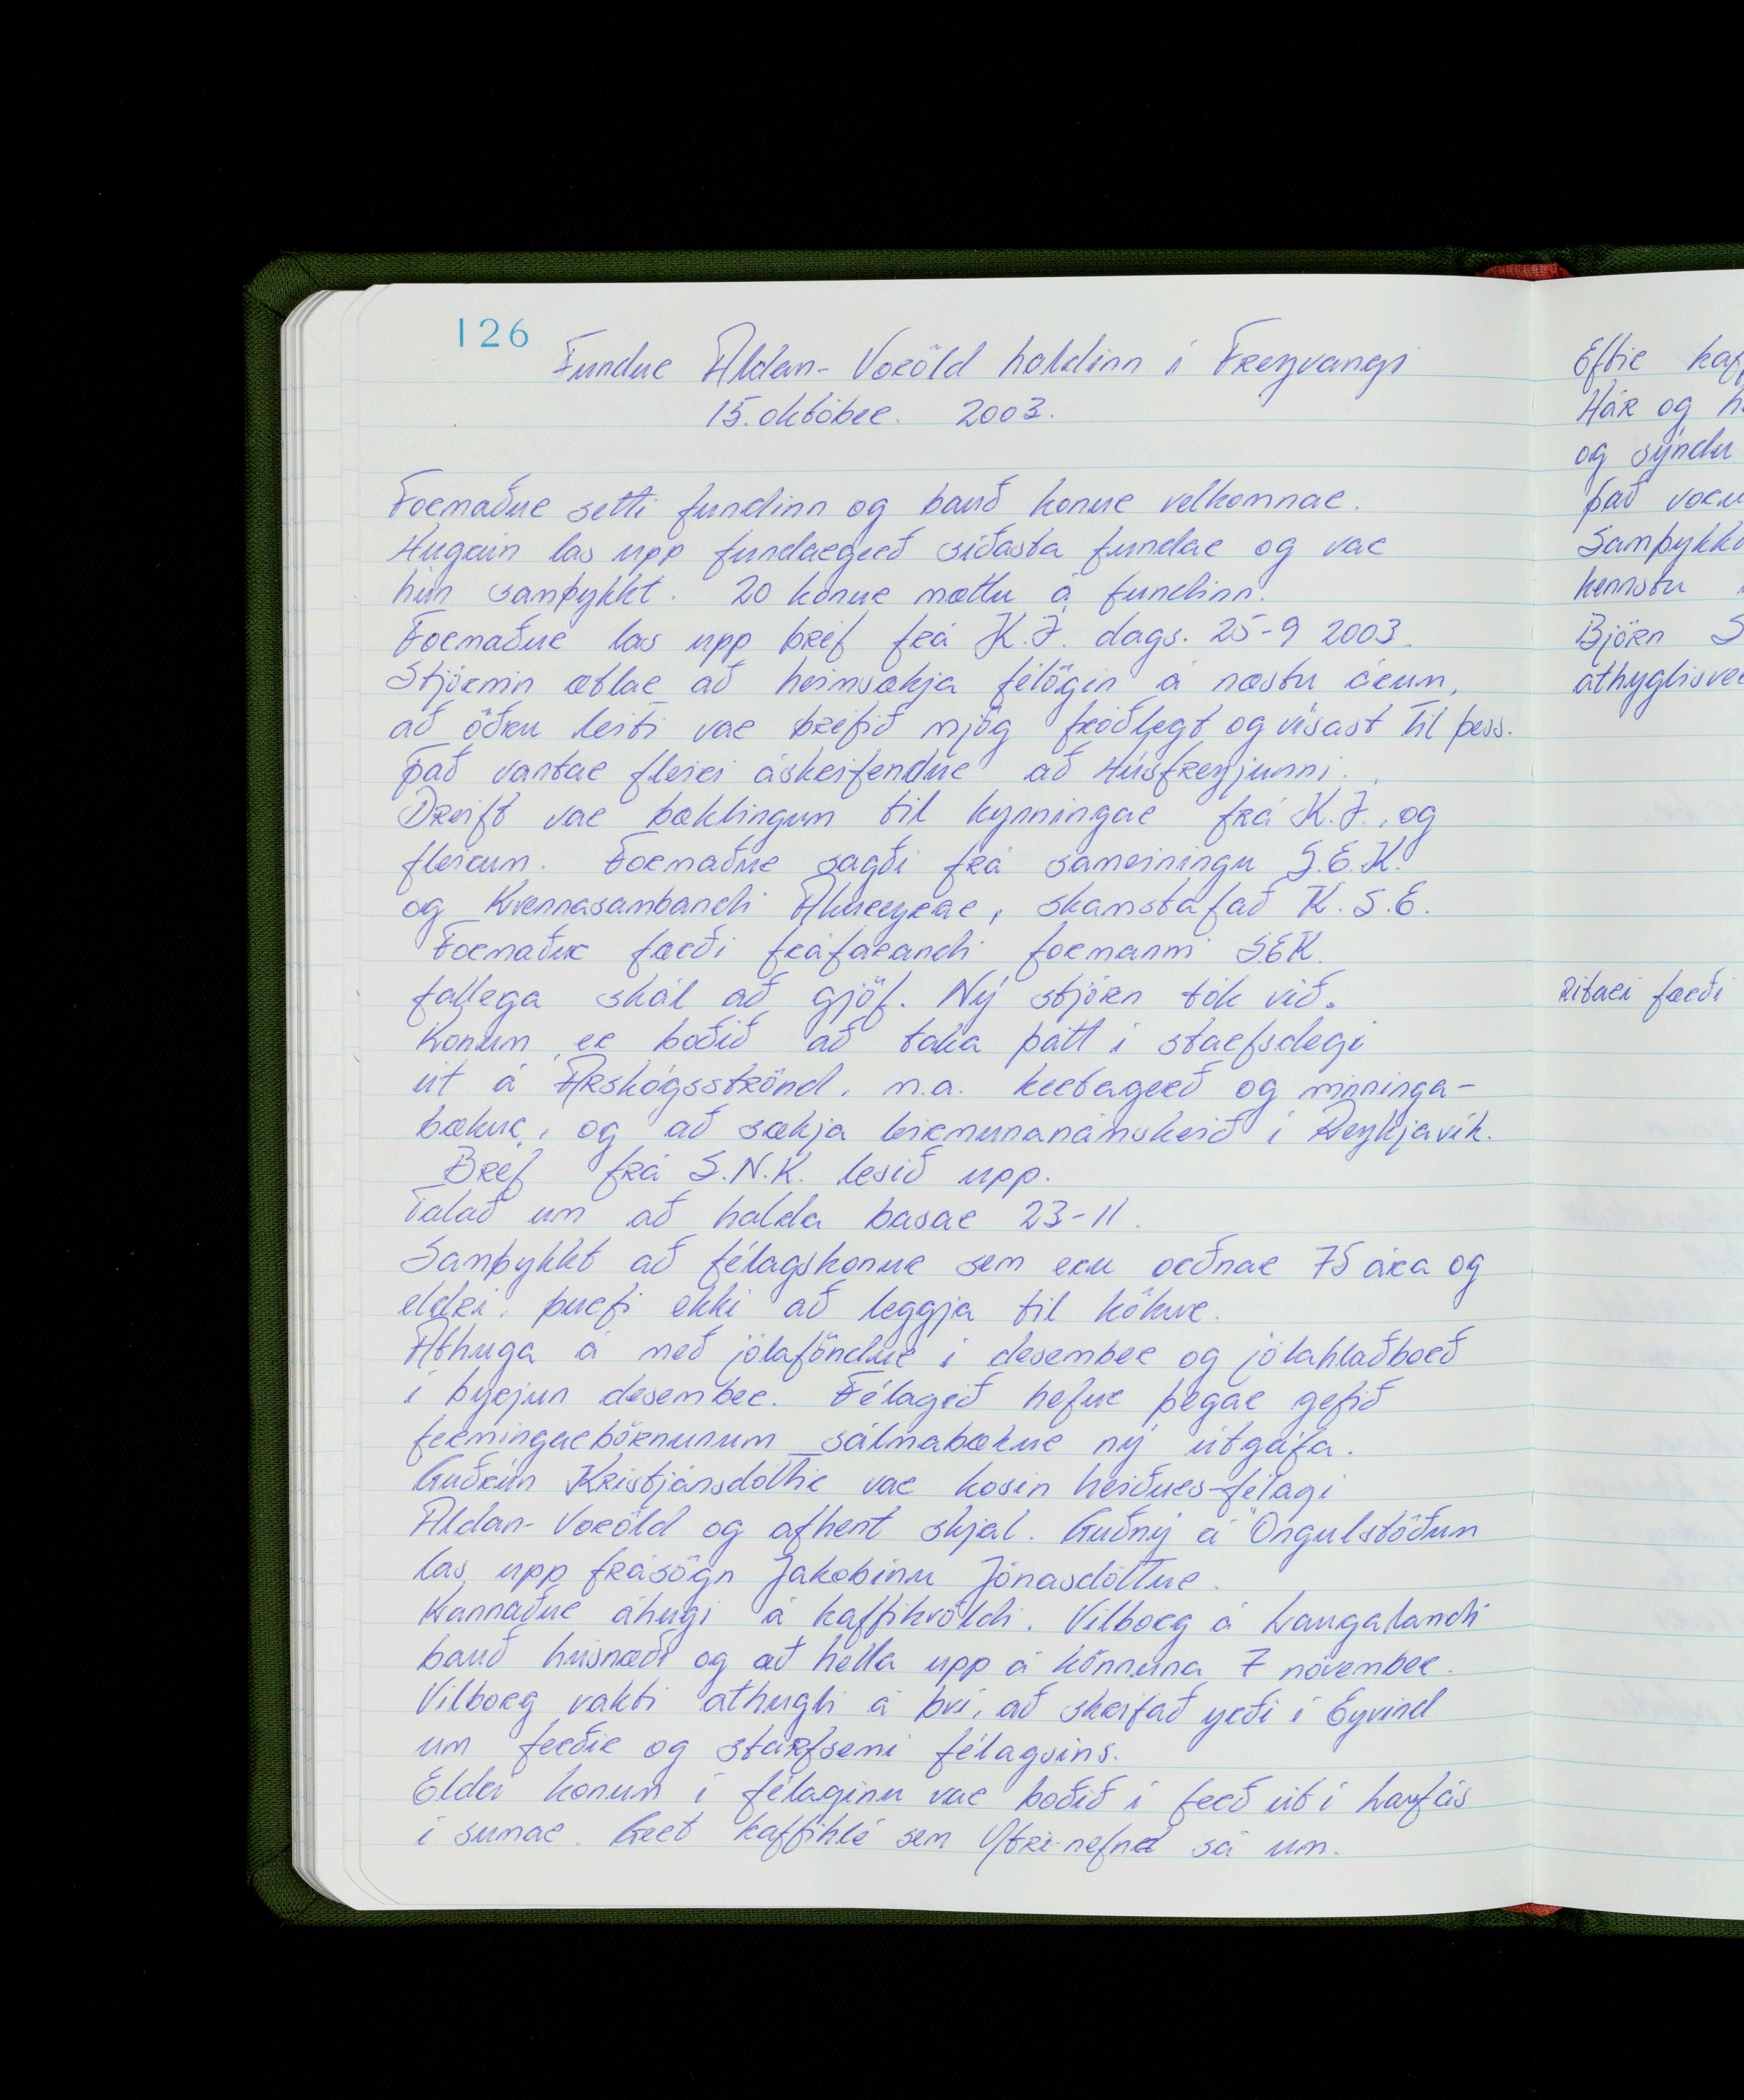 126
Fundur Aldan-Voröld haldinn í Freyvangi
15. október. 2003.
Formaður setti fundinn og bauð konur velkomnar.
Hugrún las upp fundargerð síðasta fundar og var
hún samþykkt. 20 konur mættu á fundinn.
Formaður las upp bréf frá K.Í. dags. 25-9 2003.
Stjórnin ætlar að heimsækja félögin á næstu árum,
að öðru leiti var bréfið mjög fróðlegt og vísast til þess.
Það vantar fleiri áskrifendur að Húsfreyjunni.
Dreift var bæklingum til kynningar frá K.Í., og
fleirum. Formaður sagði frá sameiningu S.E.K.
og Kvennasambandi Akureyrar, skamstafað K.S.E.
Formaður færði fráfarandi formanni SEK.
fallega skál að gjöf. Ný stjórn tók við.
Konum er boðið að taka þátt í starfsdegi
út á Árskógsströnd, m.a. kertagerð og minninga-
bækur, og að sækja leirmunanámskeið í Reykjavík.
Bréf frá S.N.K. lesið upp.
Talað um að halda basar 23-11.
Samþykkt að félagskonur sem eru orðnar 75 ára og
eldri, þurfi ekki að leggja til kökur.
Athuga á með jólaföndur í desember og jólahlaðborð
í byrjun desember. Félagið hefur þegar gefið
fermingarbörnunum sálmabækur ný útgáfa.
Guðrún Kristjánsdóttir var kosin heiðurs-félagi
Aldan-Voröld og afhent skjal. Guðný á Öngulstöðum
las upp frásögn Jakobínu Jónasdóttur.
Kannaður áhugi á kaffikvöldi. Vilborg á Laugalandi
bauð húsnæði og að hella upp á könnuna 7 nóvember.
Vilborg vakti athygli á því, að skrifað yrði í Eyvind
um ferðir og starfsemi félagsins.
Eldri konum í félaginu var boðið í ferð út í Laufás
í sumar. Gert kaffihlé sem Ytri-nefnd sá um.
Eftir
Hár og
og sýndu
það voru
kennstu
Björn S
ritari færði